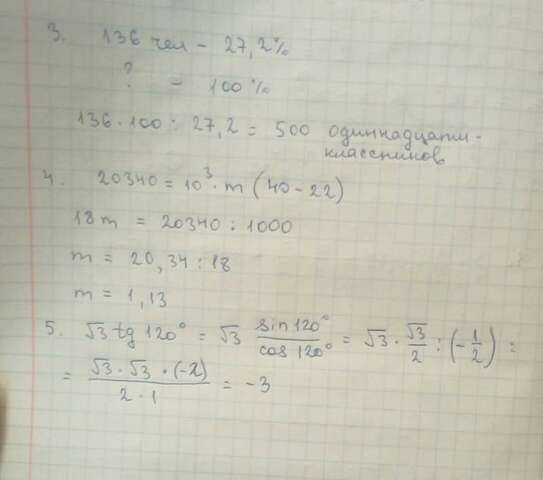 3. 136 чел - 27,2%
? - 100%
136·100 : 27,2 = 500 одиннадцати-
классников
4. 20340 = 10³·m (40-22)
18m = 20340 : 1000
m = 20,34 : 18
m = 1,13
5. √3 tg 120° = √3 sin 120° / cos 120° = √3 · √3/2 : (-1/2) =
= √3·√3·(-2) / 2·1 = -3